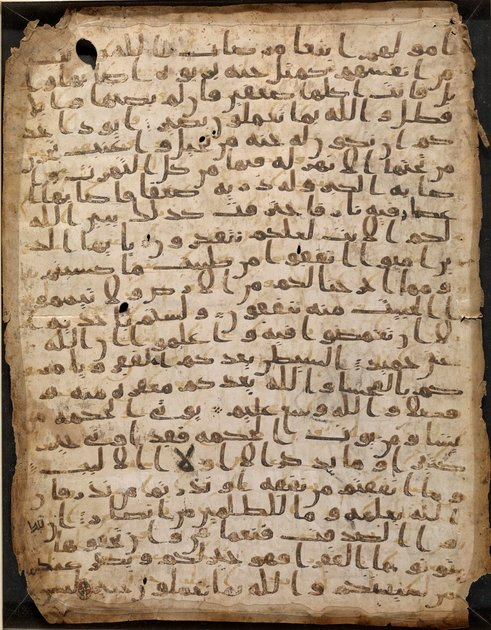 امولهم ابتغا مرضات الله وتثبيتا
من انفسهم كمثل جنه بربوه اصابها وا
بل فاتت اكلها ضعفين فان لم يصبها وابل
فطل والله بما تعملون بصير ايود احد
كم ان تكون له جنه من نخيل واعنب تجري
من تحتها الانهر له فيها من كل الثمرت وا
صابه الكبر وله ذريه ضعفا فاصابها ا
عصار فيه نار فاحترقت كذلك يبين الله
لكم الايت لعلكم تتفكرون يايها الذ
ين امنوا انفقوا من طيبت ما كسبتم
ومما اخرجنا لكم من الارض ولا تيمموا
الخبيث منه تنفقون ولستم باخذيه ا
لا ان تغمضوا فيه واعلموا ان الله
غني حميد الشيطن يعدكم الفقر ويامر
كم بالفحشا والله يعدكم مغفره منه و
فضلا والله وسع عليم يوتي الحكمه من
يشا ومن يوت الحكمه فقد اوتي خيرا
كثيرا وما يذكر الا اولوا الالبب
وما انفقتم من نفقه او نذرتم من نذر فان
الله يعلمه وما للظلمين من انصار ان
تبدوا الصدقت فنعما هي وان تخفوها
وتوتوها الفقرا فهو خير لكم ويكفر عنكم
من سيتكم والله بما تعملون خبير ليس